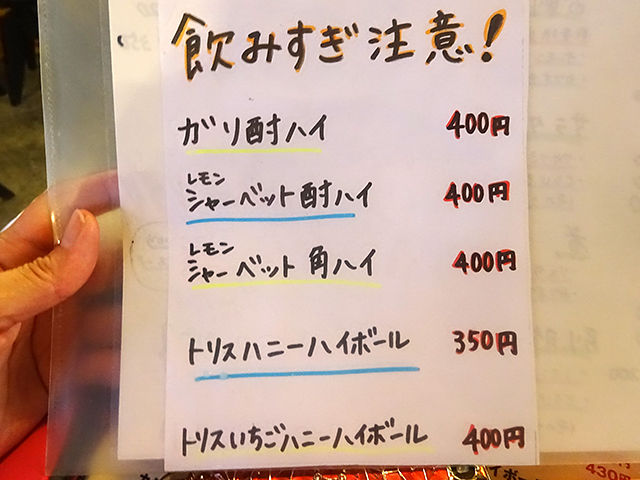 飲みすぎ注意!
ガリ酎ハイ 400円
レモン
シャーベット酎ハイ 400円
レモン
シャーベット角ハイ 400円
トリスハニーハイボール 350円
トリスいちごハニーハイボール 400円
430円